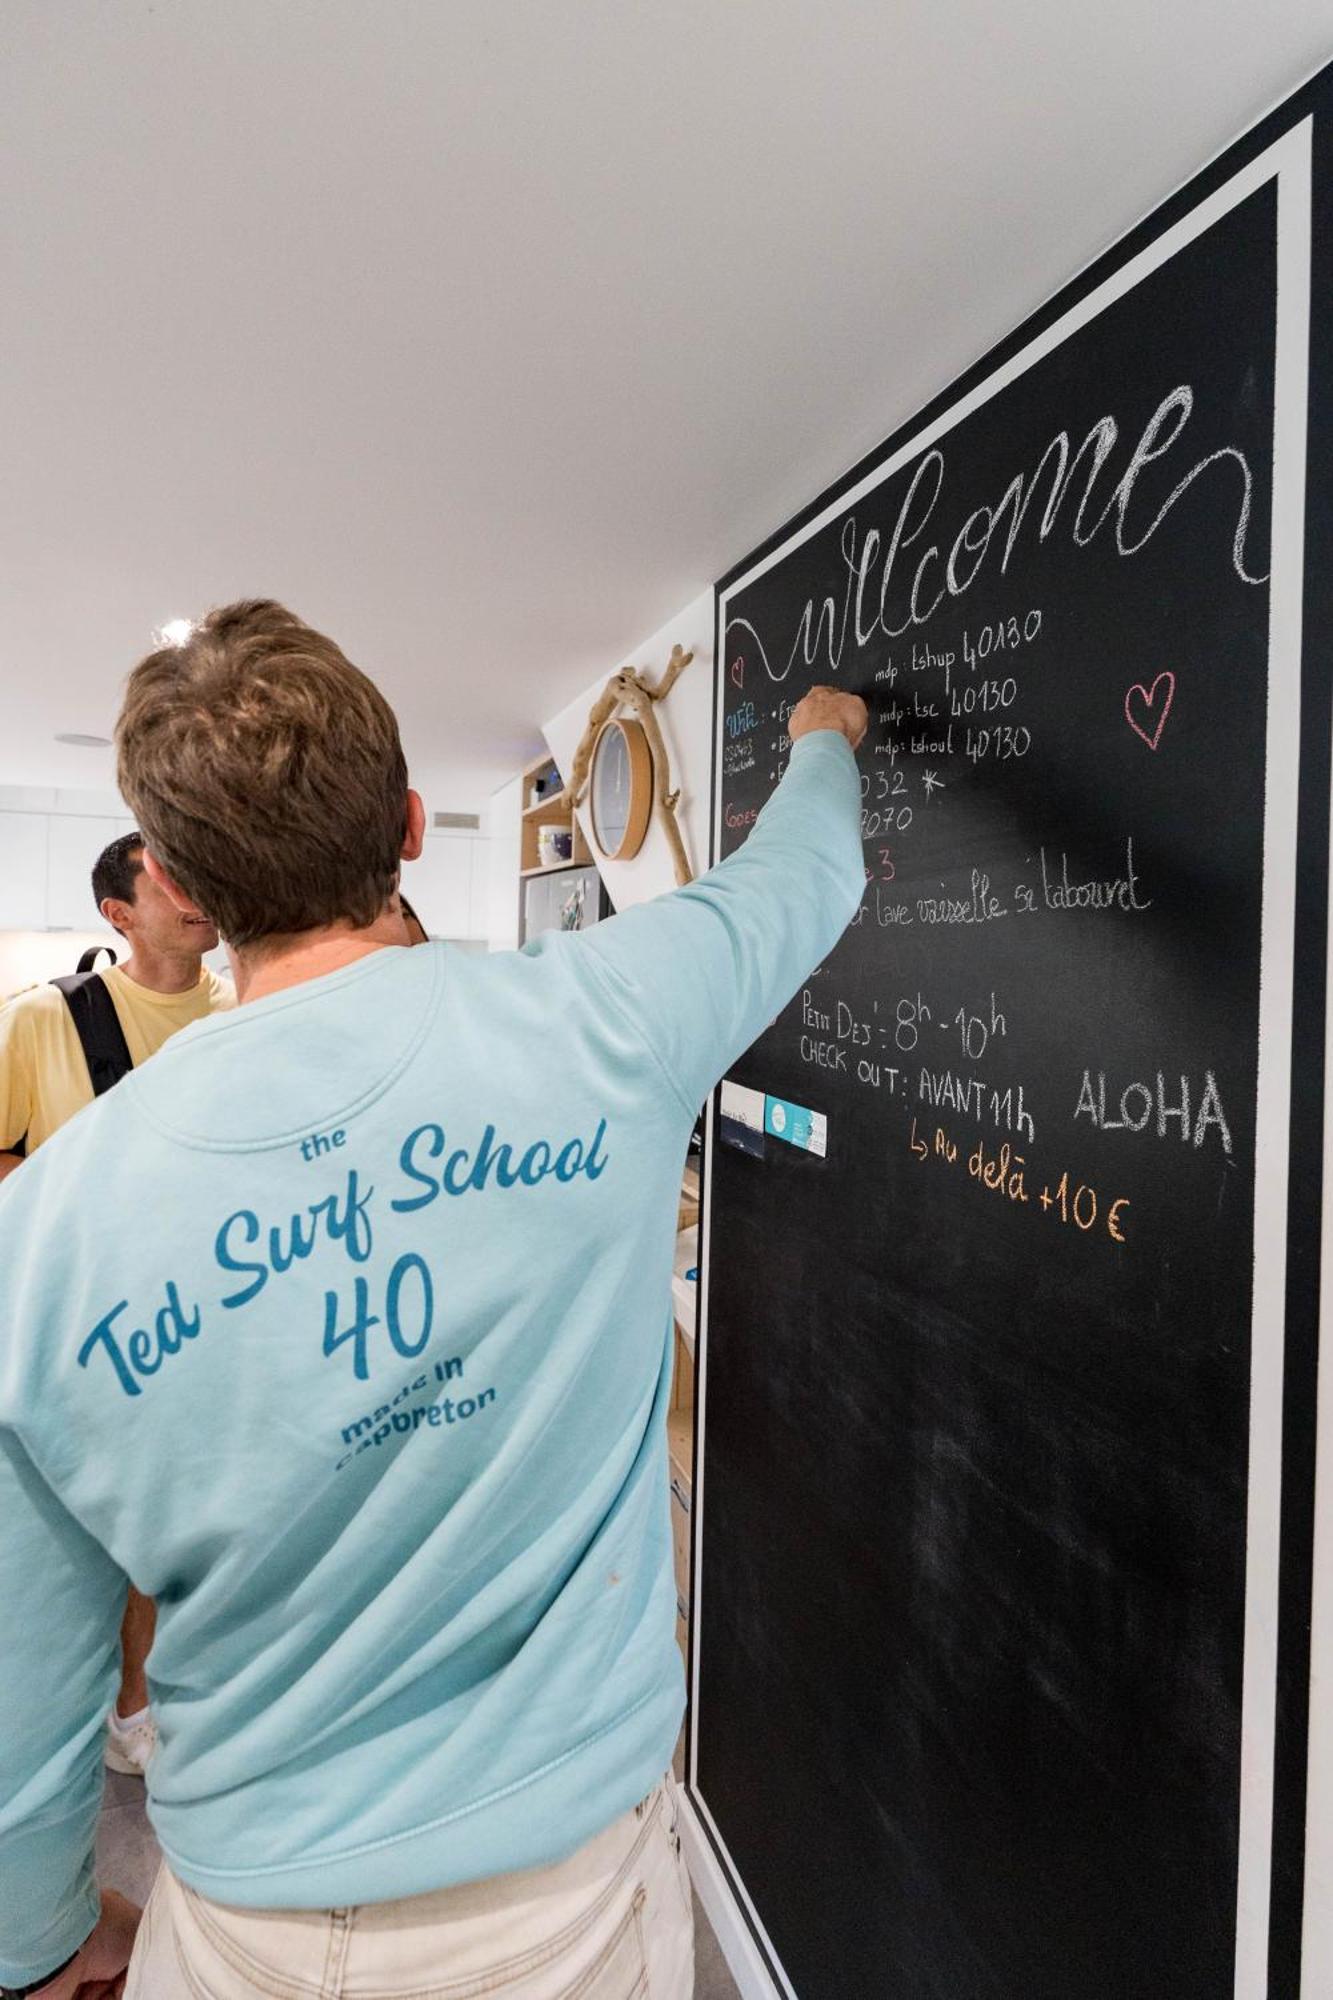 Welcome
mdp : tshup 40130
Wifi : mdp : tsc 40130
mdp : tshout 40130
032 *
Codes 7070
3
lave vaisselle si tabouret
Petit Dej' : 8h - 10h
CHECK OUT : AVANT 11h
ALOHA
↳ Au delà +10 €
the
Ted Surf School
40
made in
capbreton